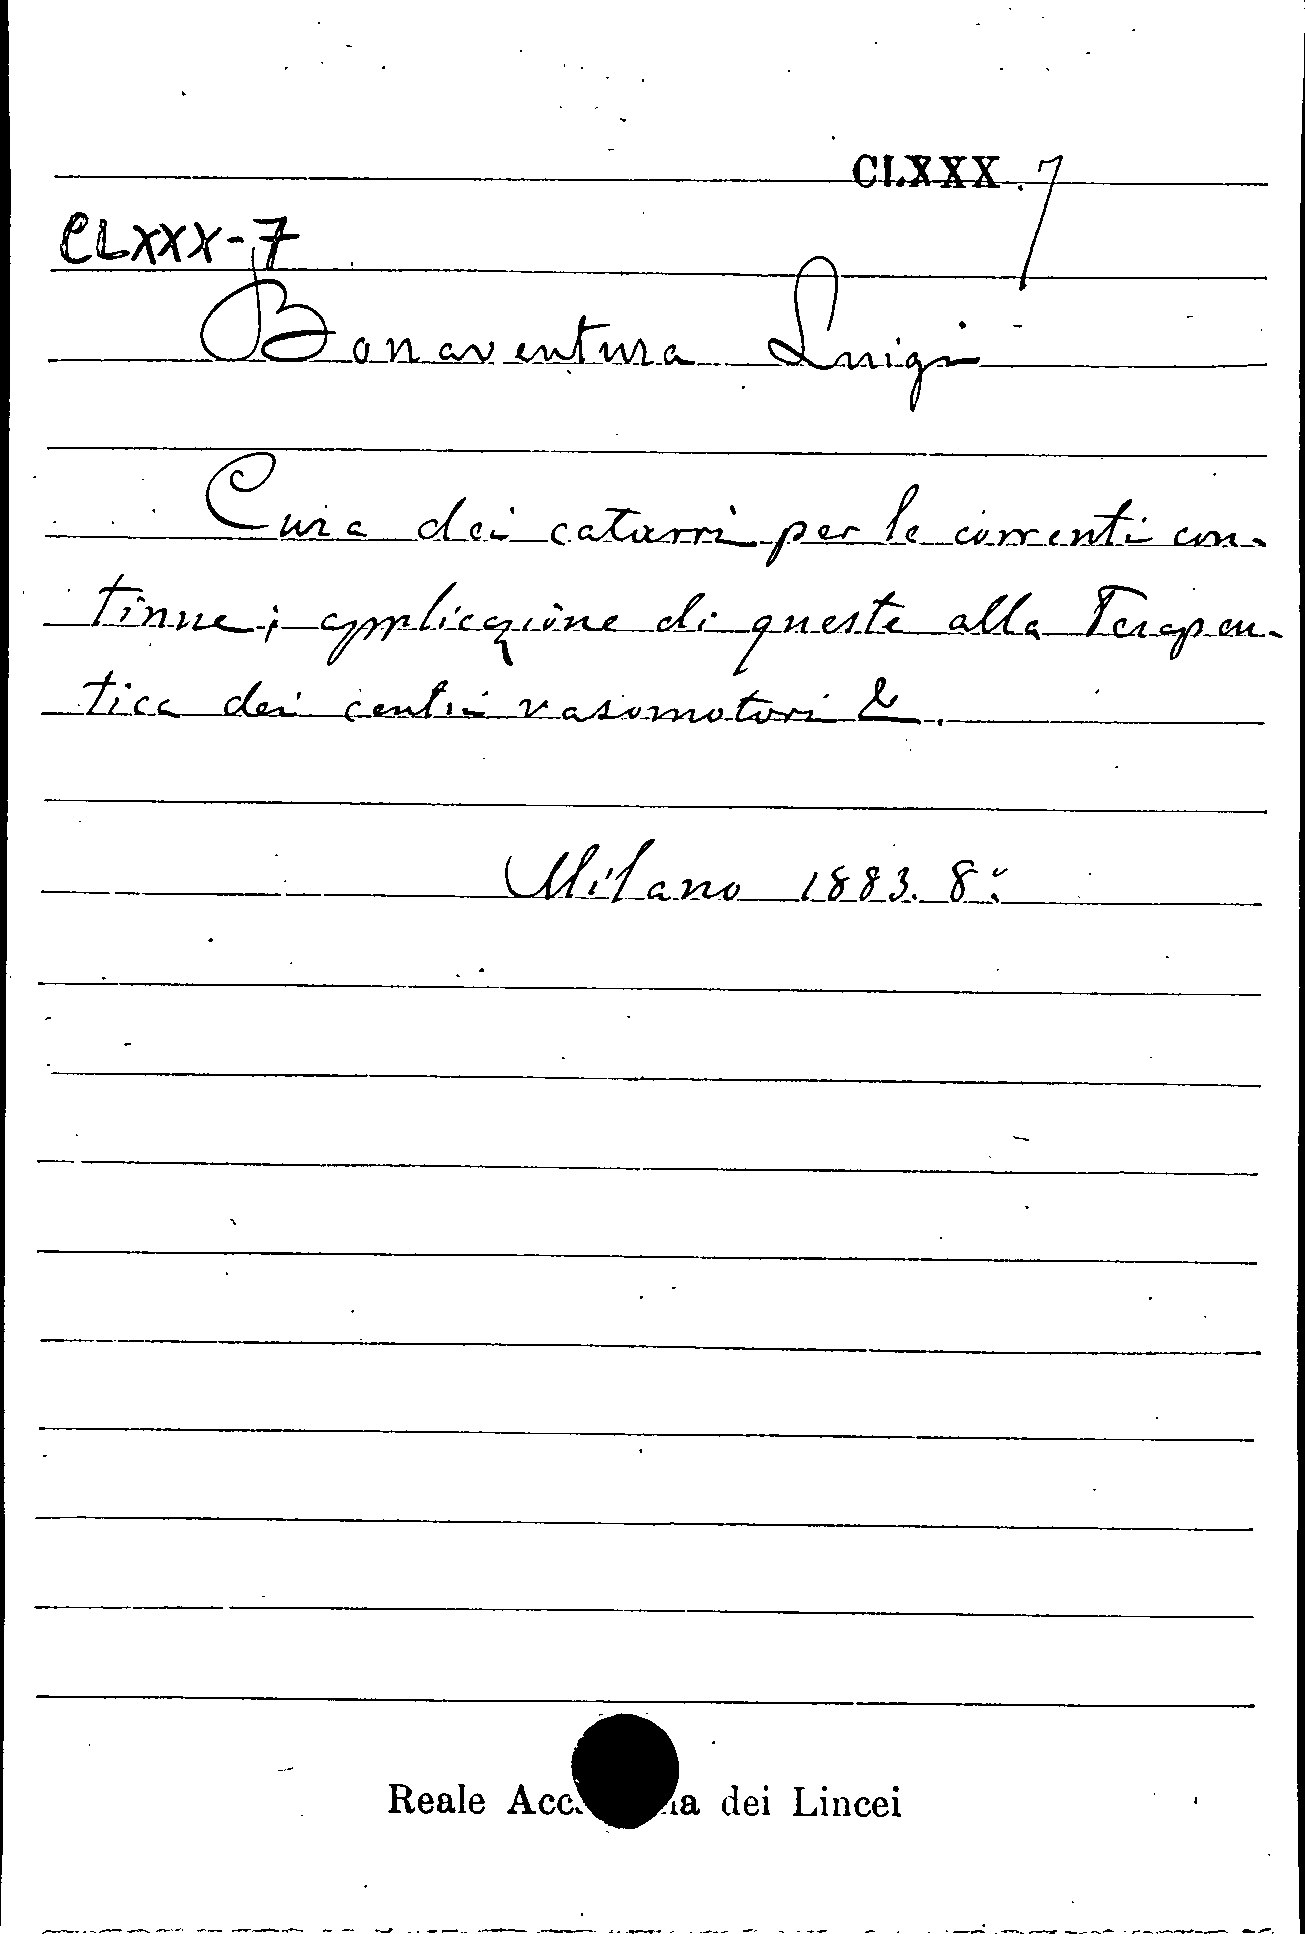 CLXXX. 7
CLXXX-7
Bonaventura Luigi
Cura dei catarri per le correnti con-
tinue; applicazione di queste alla Terapeu-
tica dei centri vasomotori &.
Milano 1883. 8:
Reale Acc ia dei Lincei